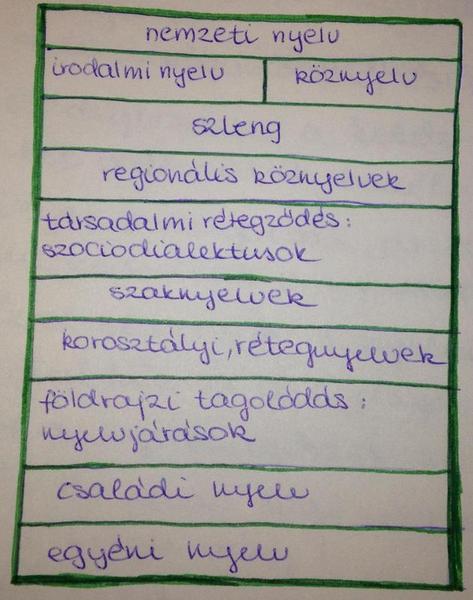 nemzeti nyelv
irodalmi nyelv
köznyelv
szleng
regionális köznyelvek
társadalmi rétegződés:
szociodialektusok
szaknyelvek
korosztályi, rétegnyelvek
földrajzi tagolódás:
nyelvjárások
családi nyelv
egyéni nyelv